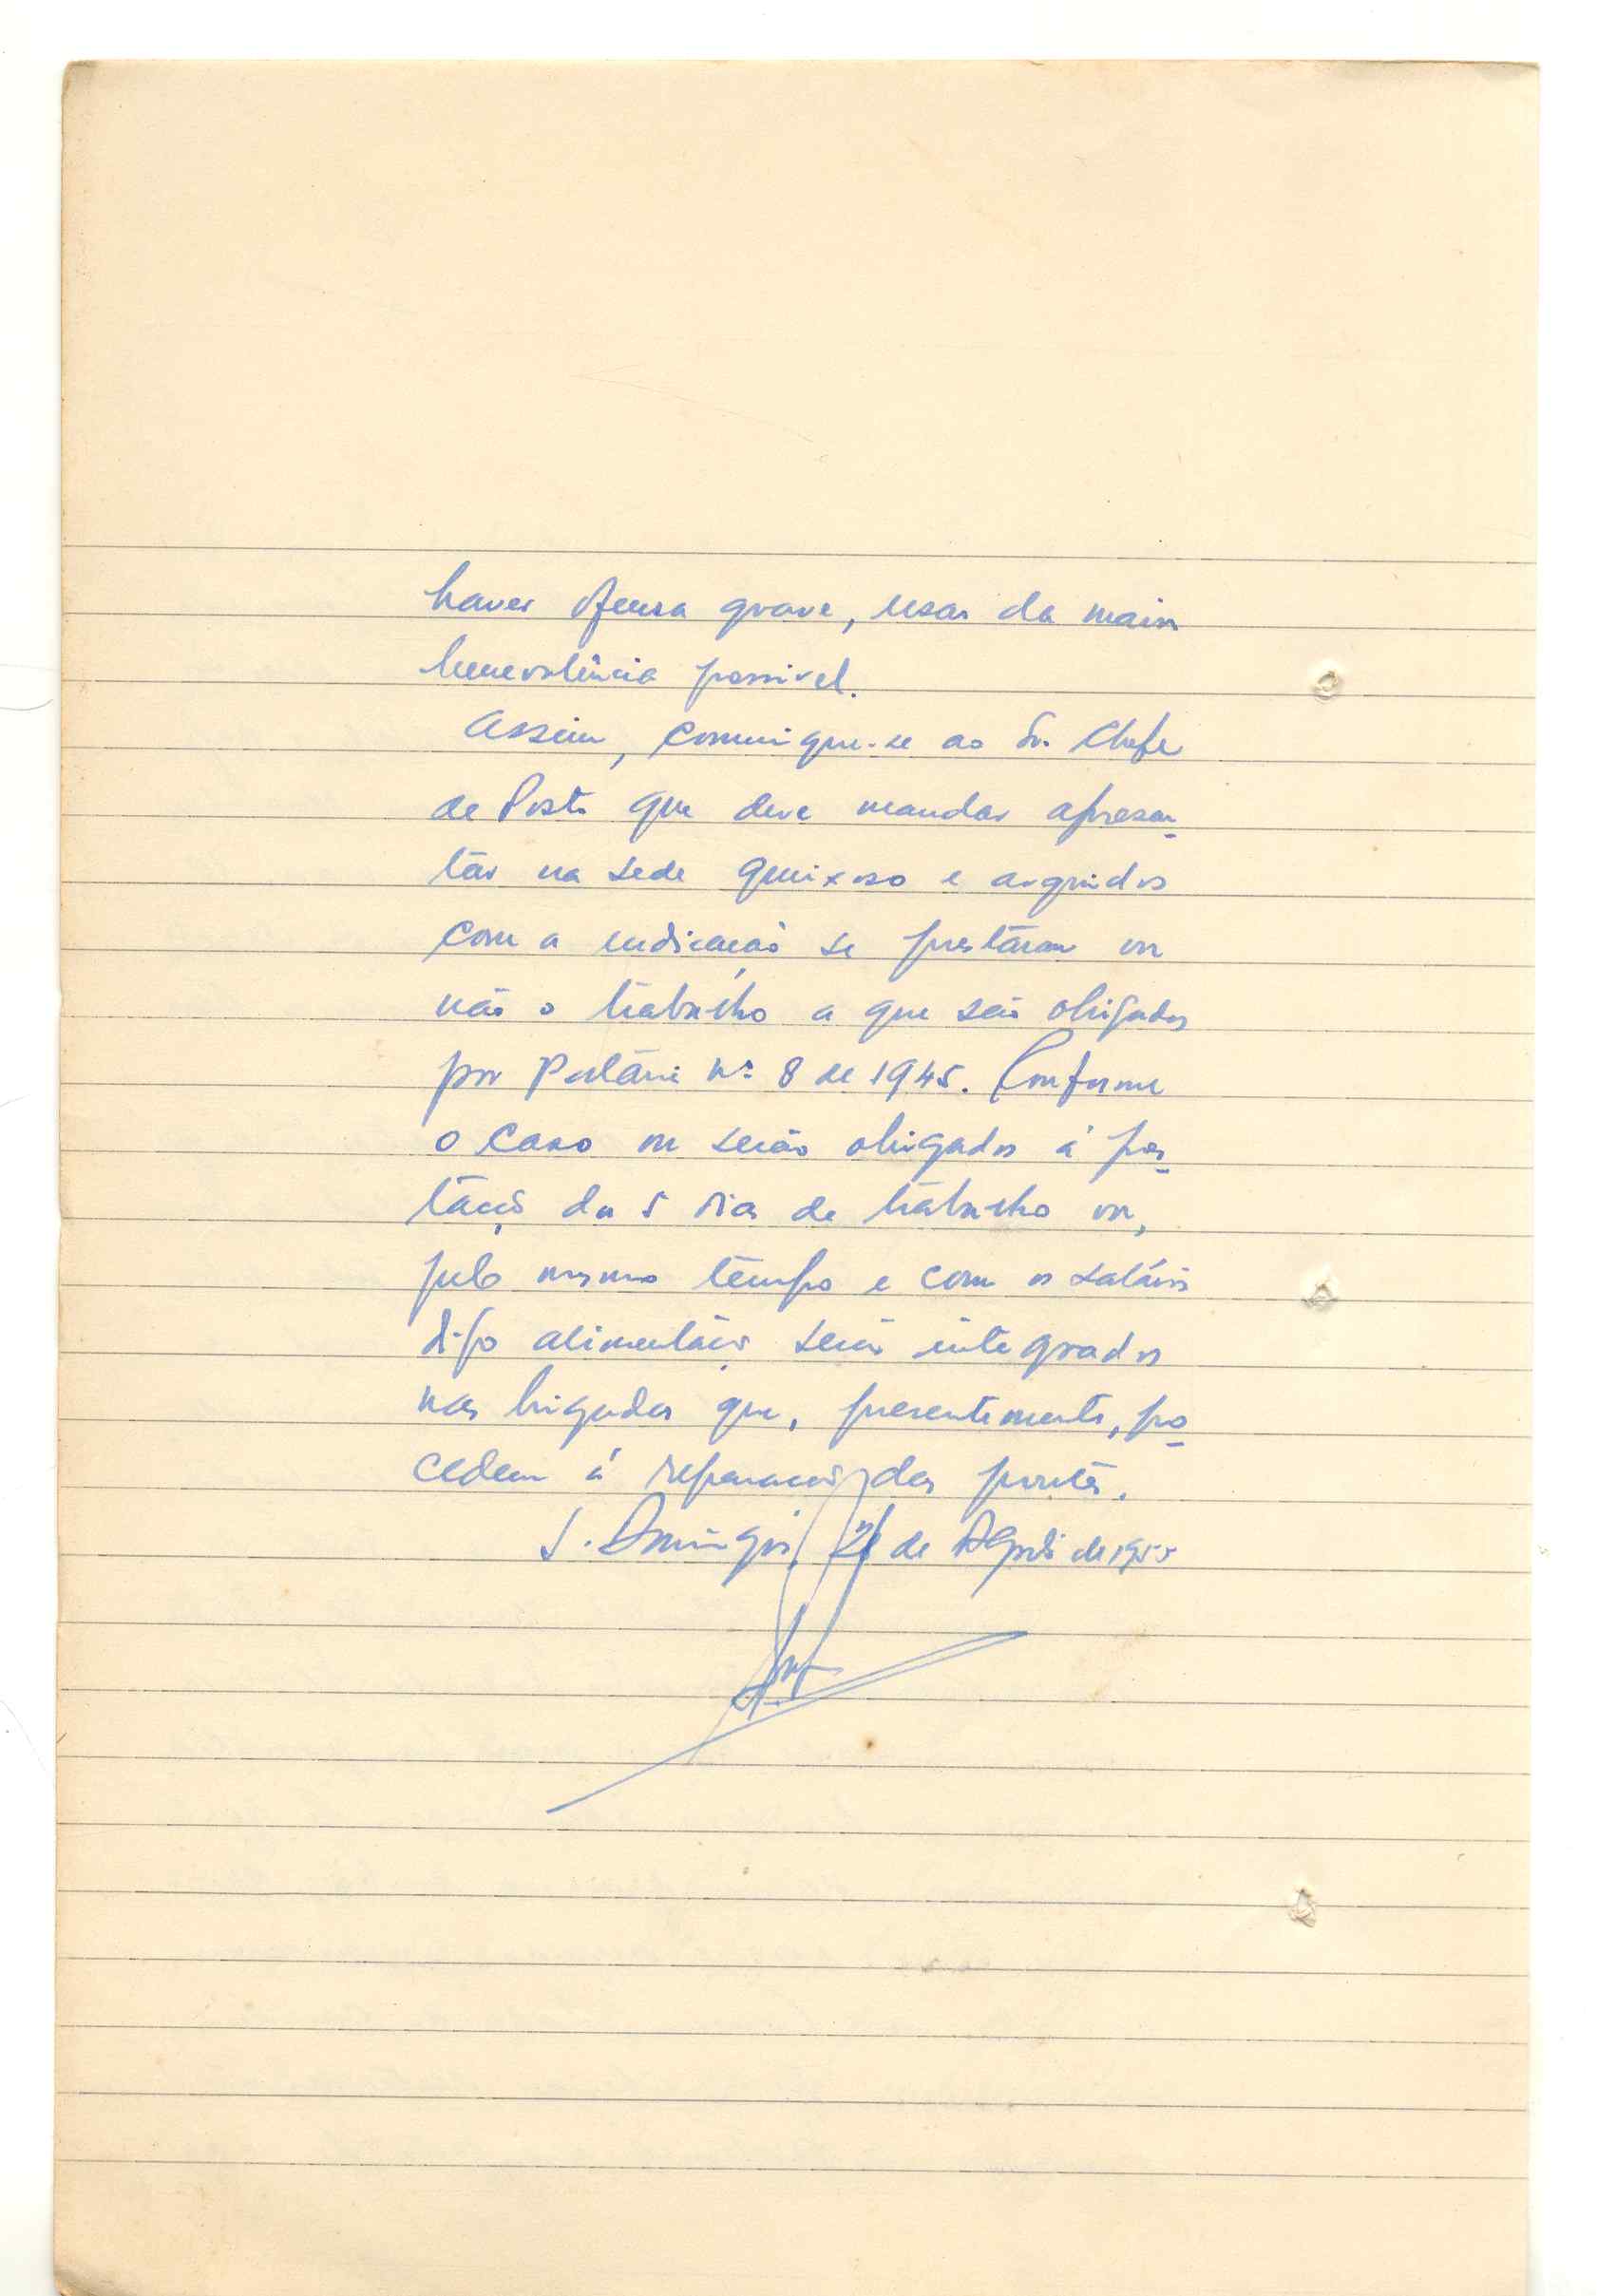 haver ofensa grave, usar da maior
benevolência possivel.
Assim, comunique-se ao Sr. Chefe
de Posto que deve mandar apresen-
tar na sede queixoso e arguidos
com a indicação se prestaram ou
não o trabalho a que são obrigados
por Portaria nº 8 de 1945. Conforme
o caso ou serão obrigados á pres-
tação dos 5 dias de trabalho ou,
pelo mesmo tempo e com os salários
digo alimentação serão integrados
nas brigadas que, presentemente, pro-
cedem á reparação das pontes.
S. Domingos, de Agosto de 1955